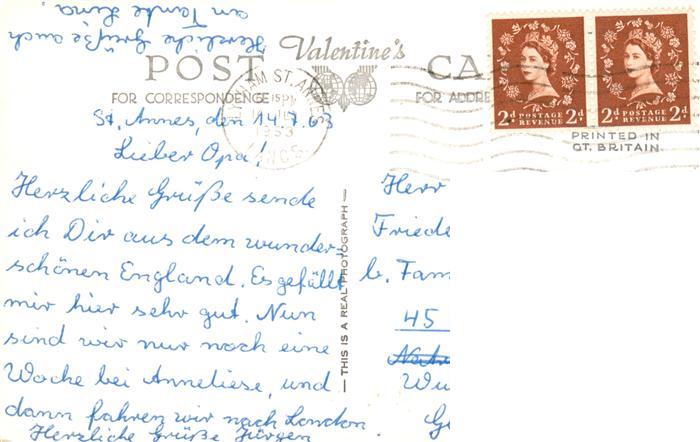 Herzliche Grüße auch
an Tante Lina
Valentine's
POST CA
FOR CORRESPONDENCE FOR ADDRE
ST. ANNES
15 PM
1963
LANCS
2d POSTAGE REVENUE 2d
2d POSTAGE REVENUE 2d
PRINTED IN
GT. BRITAIN.
St. Annes, den 14.7.63
Lieber Opa!
Herzliche Grüße sende
ich Dir aus dem wunder-
schönen England. Es gefällt
mir hier sehr gut. Nun
sind wir nur noch eine
Woche bei Anneliese, und
dann fahren wir nach London.
Herzliche Grüße Jürgen
— THIS IS A REAL PHOTOGRAPH —
Herr
Friede
b. Fam
45
Wu